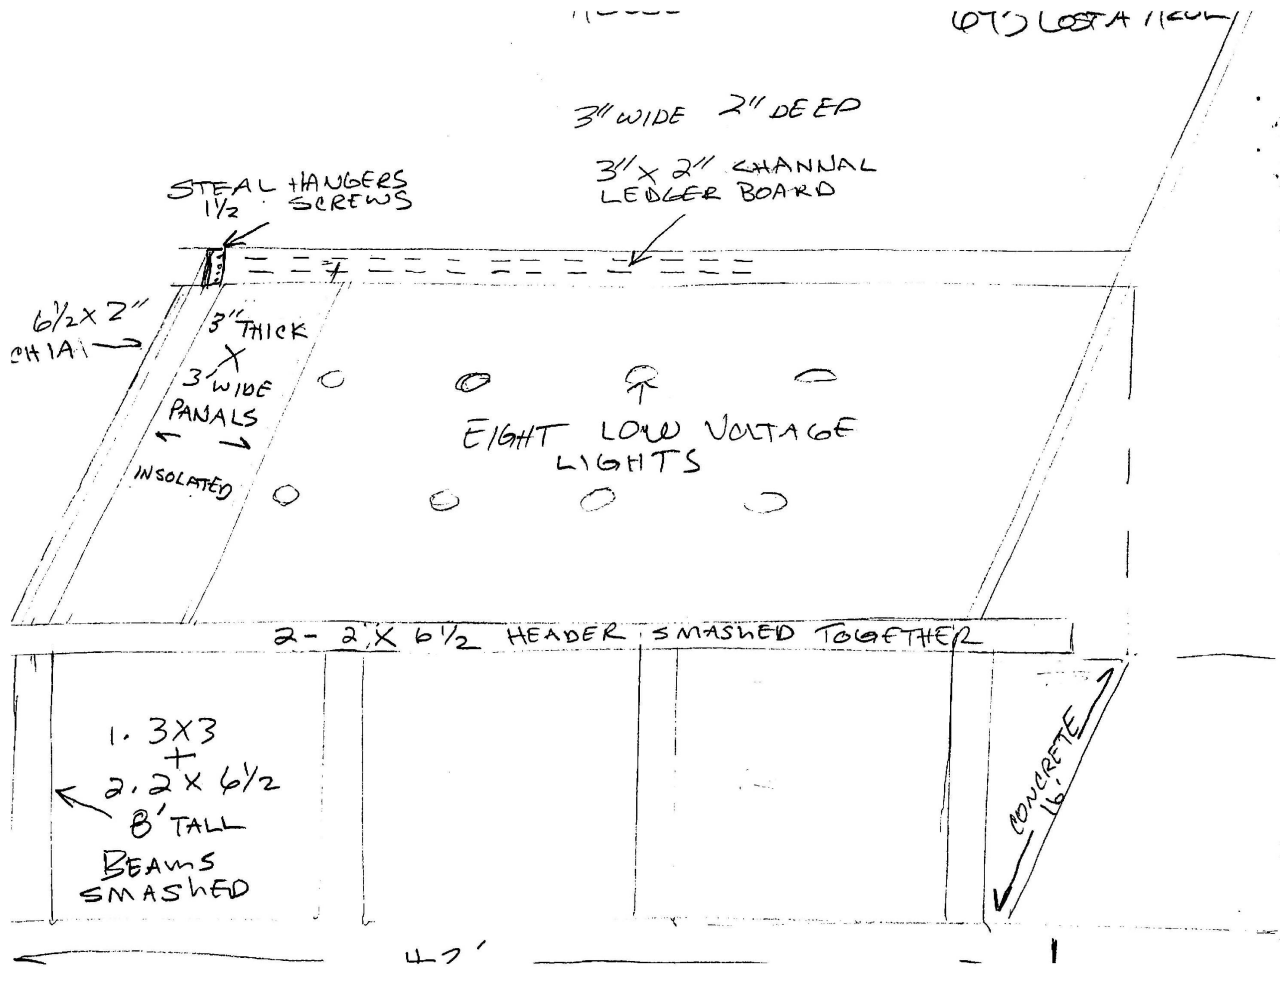 3" WIDE 2" DEEP
3" X 2" CHANNAL
LEDGER BOARD
STEAL HANGERS
1 1/2 SCREWS
6 1/2 X 2"
3" THICK
X
3' WIDE
PANALS
INSOLATED
EIGHT LOW VOLTAGE
LIGHTS
2- 2 X 6 1/2 HEADER SMASHED TOGETHER
1. 3X3
+
2. 2 X 6 1/2
8' TALL
BEAMS
SMASHED
CONCRETE
16'